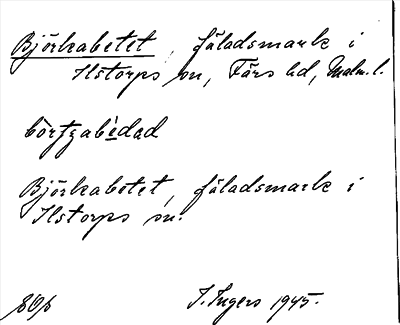 Björkabetet, fäladsmark i
Ilstorps sn, Färs hd, Malm. l.
Björkabetet, fäladsmark i
Ilstorps sn.
I. Ingers 1945.